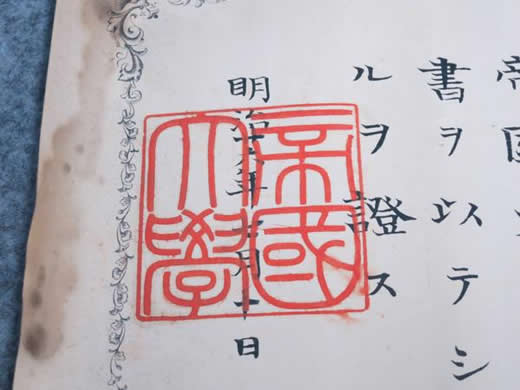 帝国
書ヲ以テシ
ルヲ證ス
明治 年 月十日
帝國大學